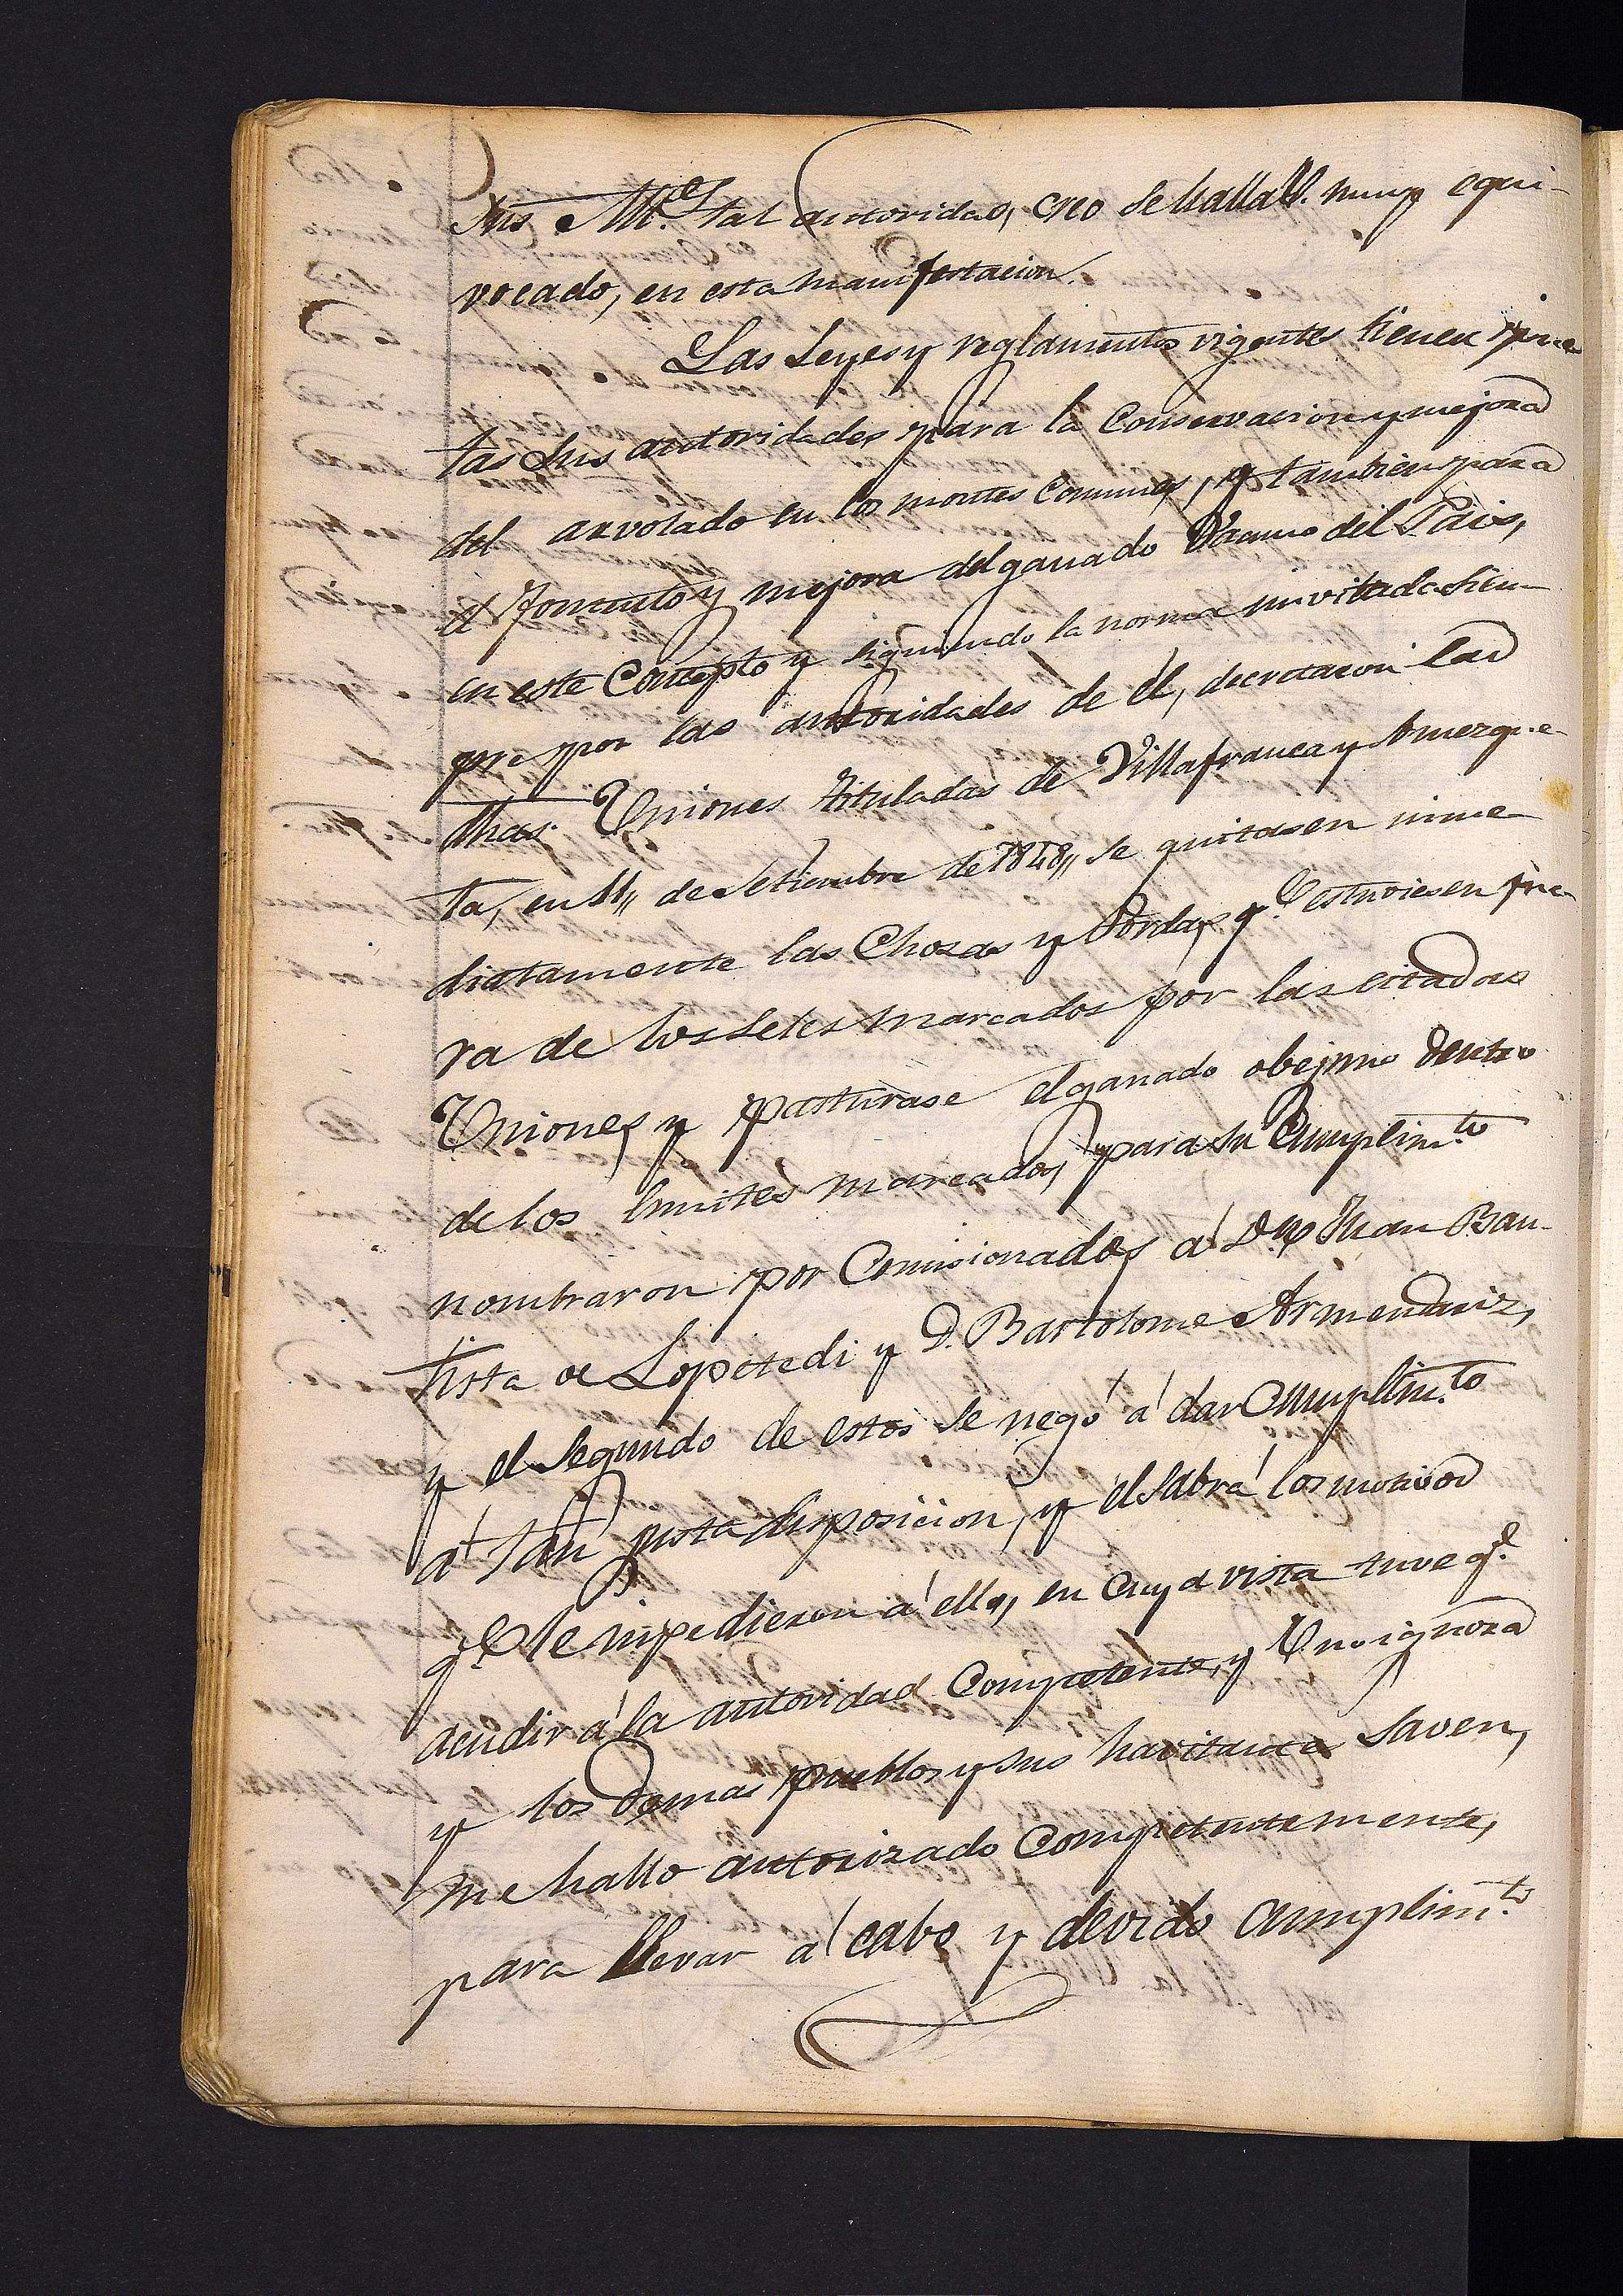 sus M.es tal autoridad, creo se halla V. muy equi-
vocado, en esta manifestacion.
Las Leyes y reglamentos vigentes tienen
tas sus autoridades para la Conservacion y mejora
del arvolado en los montes Comunes, y tambien para
el fomento y mejora del ganado Vacuno del Pais,
en este Concepto y siguiendo la norma sien-
pre por las autoridades de él, decretaron las
dhas. Uniones tituladas de Villafranca y Amezque-
ta, en 11,, de Setiembre de 1848,, se quitasen inme-
diatamente las Chozas y Bordas q.e estuviesen fue-
ra de los Seles marcados por las citadas
Uniones y pasturase el ganado obejuno dentro
de los limites marcados, para su Cumplim.to
nombraron por Comisionados á D.n Juan Bau-
tista de Lopetedi y D. Bartolome Armendariz,
y el Segundo de estos se negó á dar Cumplim.to
á tan justa disposicion, y el Sabrá los motivos
q.e le inpedieron á ello, en Cuya vista tuve q.e
acudir á la autoridad Competente, y V no ignora
y los demas pueblos y sus havitantes Saven,
me hallo autorizado Competentemente,
para llevar á cabo y devido Cumplim.to